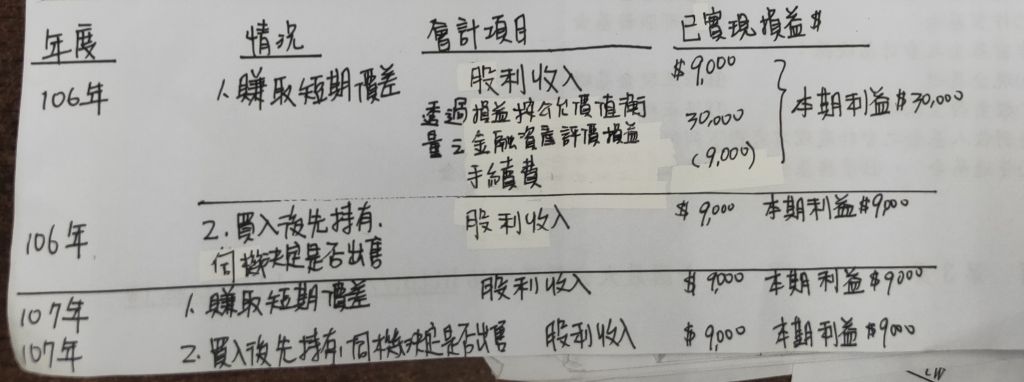 年度 情況 會計項目 已實現損益$
106年 1.賺取短期價差 股利收入 $9,000
透過損益按公允價值衡 30,000 本期利益$30,000
量之金融資產評價損益
手續費 (9,000)
106年 2.買入後先持有, 股利收入 $9,000 本期利益$9,000
伺機決定是否出售
107年 1.賺取短期價差 股利收入 $9,000 本期利益$9,000
107年 2.買入後先持有,伺機決定是否出售 股利收入 $9,000 本期利益$9,000